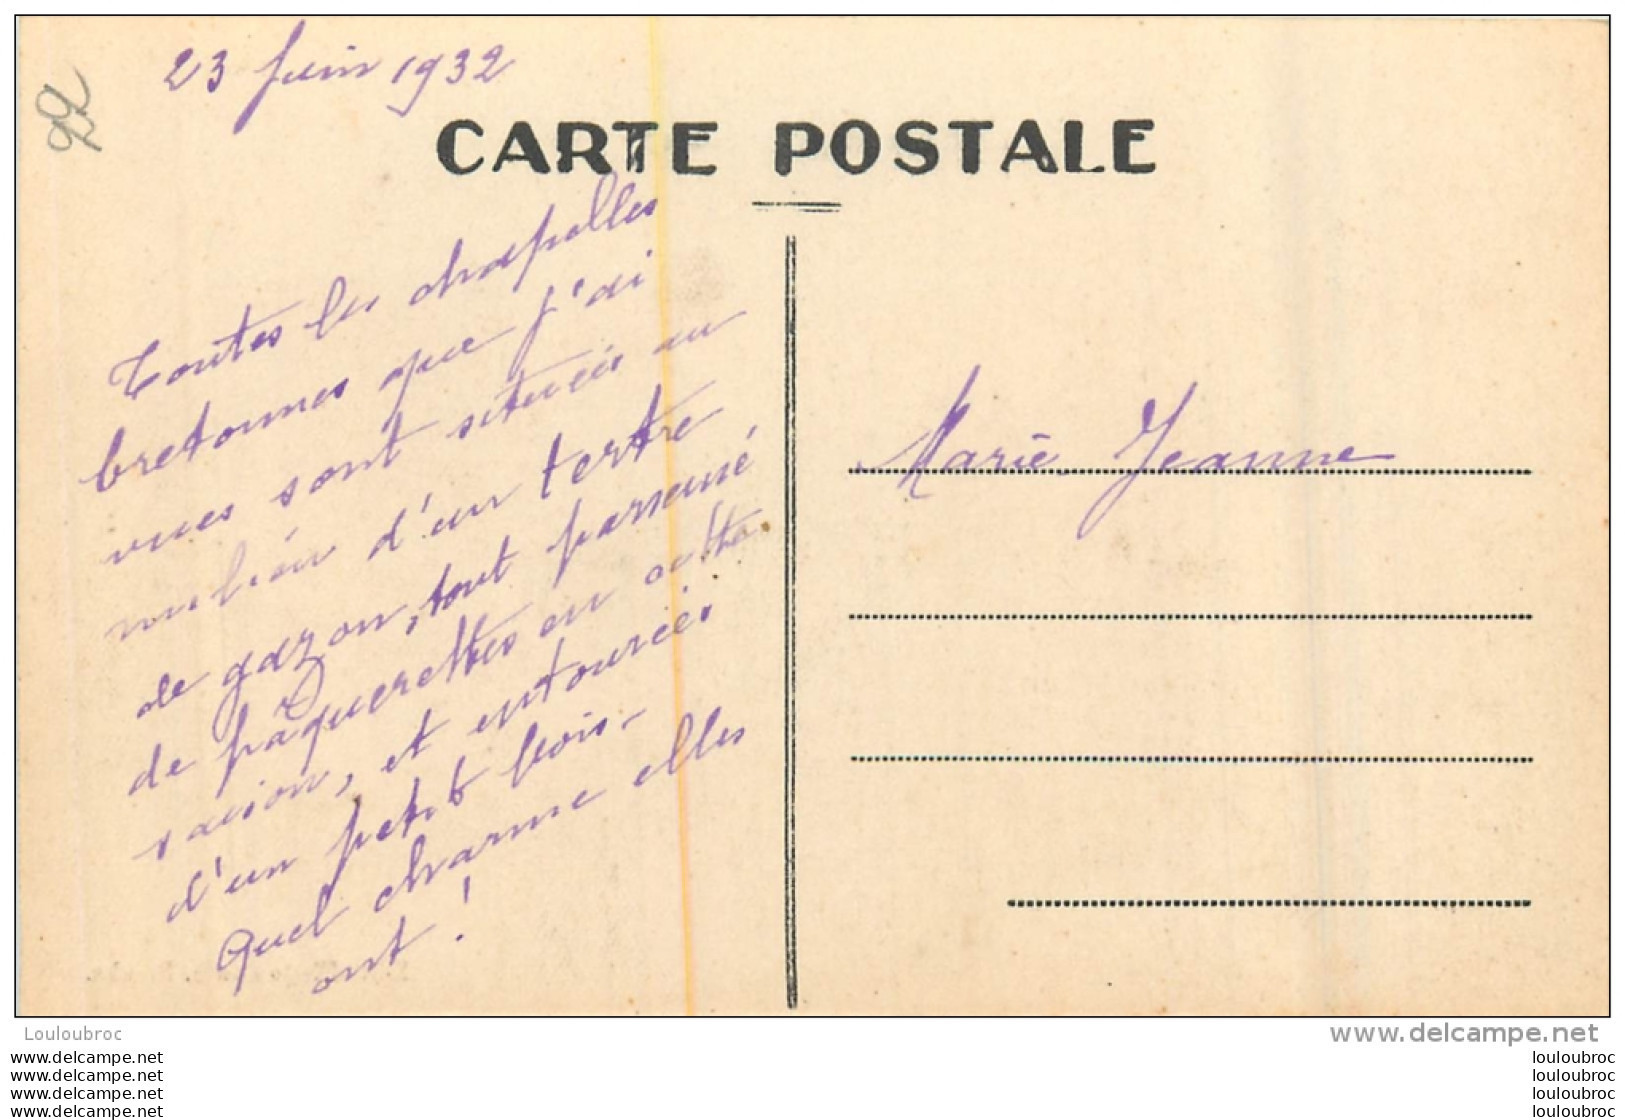 22
23 Juin 1932
CARTE POSTALE
Toutes les chapelles
bretonnes que j'ai
vues sont situées au
milieu d'un tertre
de gazon, tout parsemé
de pâquerettes en cette
saison, et entourées
d'un petit bois.
Quel charme elles
ont !
Marie-Jeanne
Louloubroc
www.delcampe.net
www.delcampe.net
www.delcampe.net
www.delcampe.net
www.delcampe.net
louloubroc
louloubroc
louloubroc
louloubroc